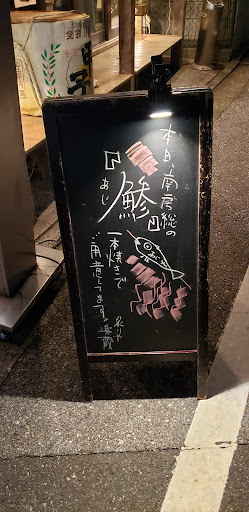 本日、南房総の
「鯵」
あじ
一本焼きで
ご用意してます。
炙りや